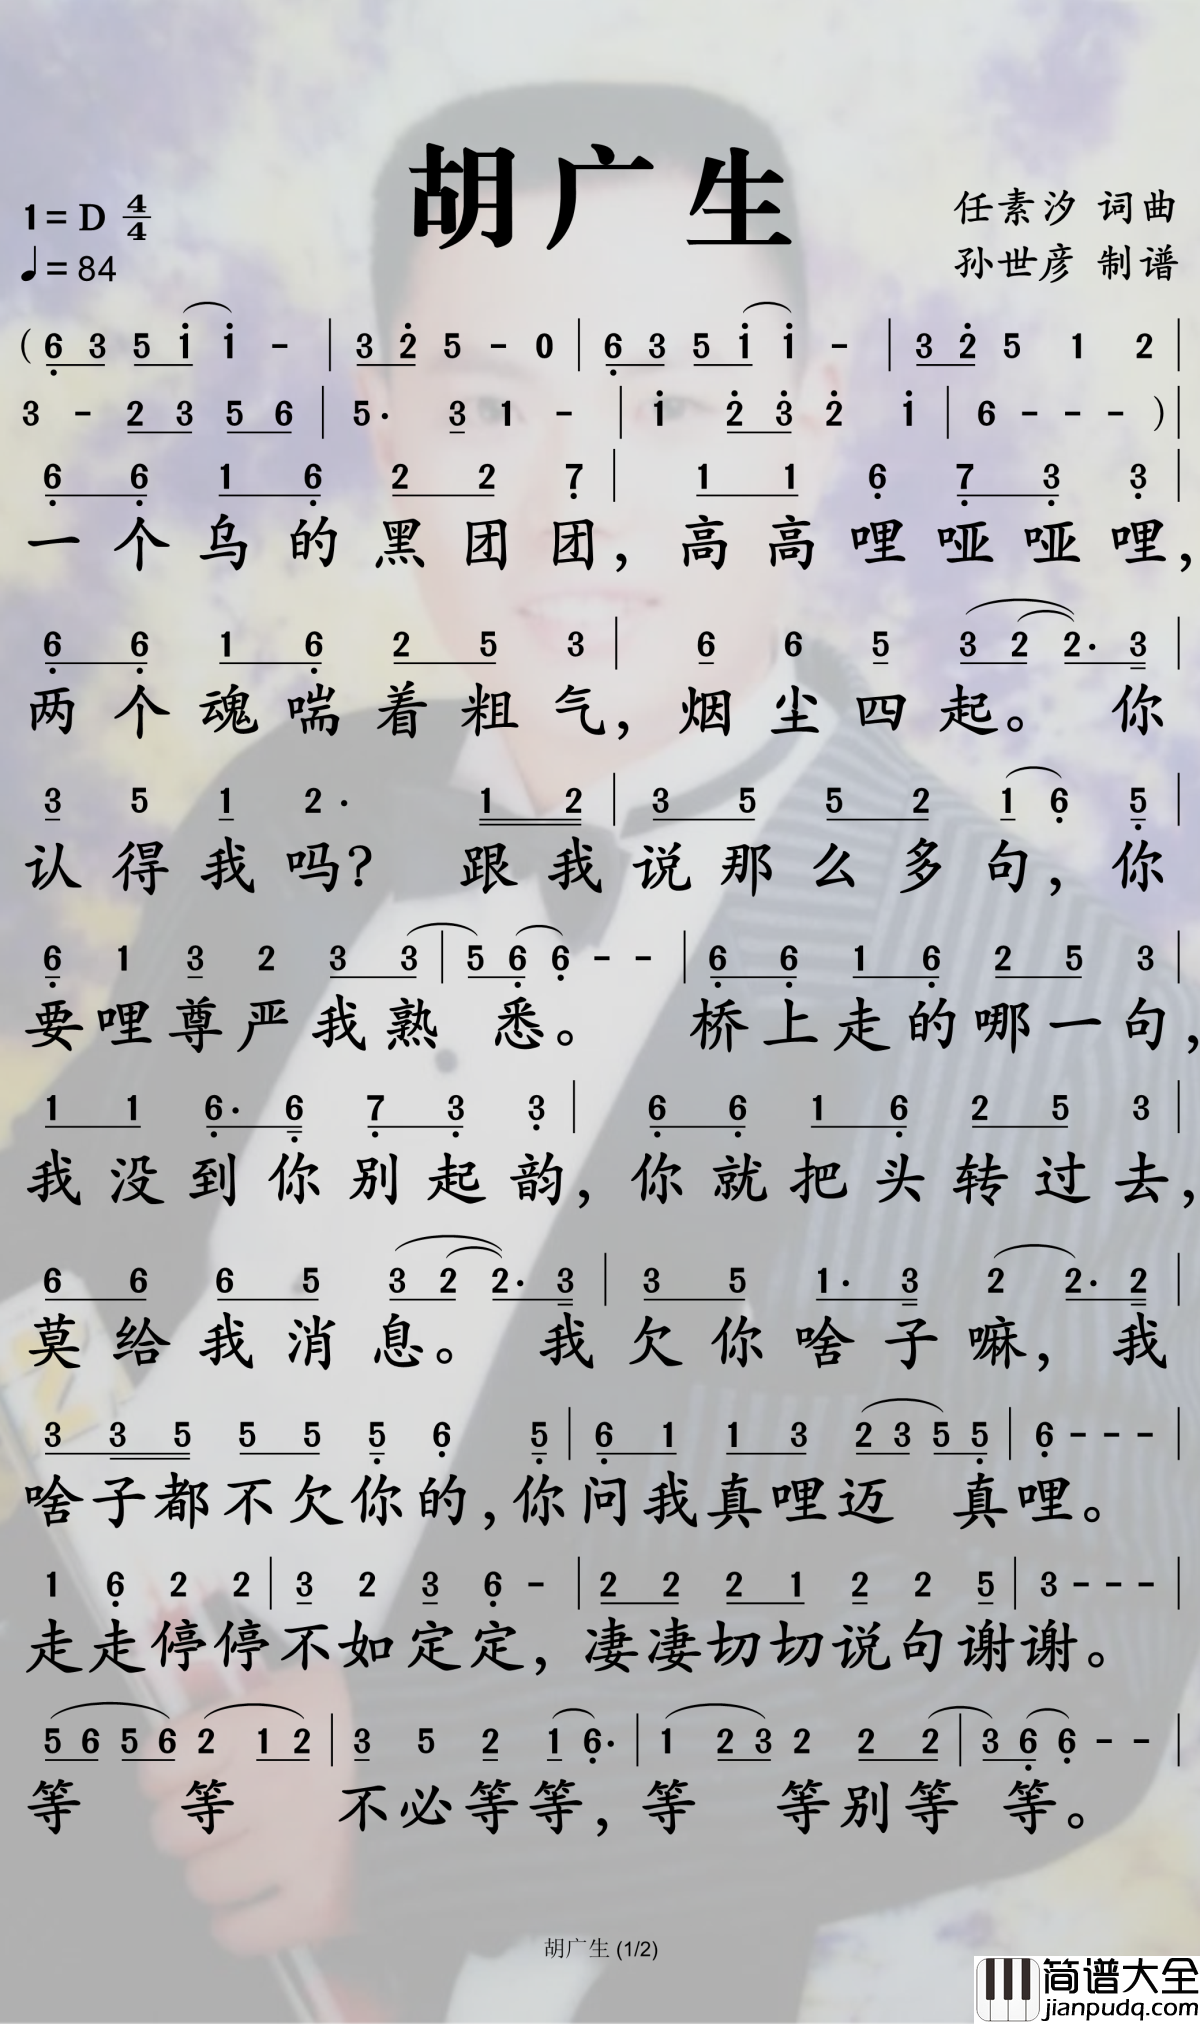 胡广生
1=D 4/4
♩=84
任素汐 词曲
孙世彦 制谱
( 6̣ 3 5 i i - | 3 2̇ 5 - 0 | 6̣ 3 5 i i - | 3 2̇ 5 1 2 |
3 - 2 3 5 6 | 5. 3 1 - | i 2̇ 3̇ 2̇ i | 6 - - - ) |
6̣ 6̣ 1 6̣ 2 2 7̣ | 1 1 6̣ 7̣ 3̣ 3̣ |
一个乌的黑团团，高高哩哑哑哩，
6̣ 6̣ 1 6̣ 2 5 3 | 6 6 5 3 2 2. 3 |
两个魂喘着粗气，烟尘四起。你
3 5 1 2. 1 2 | 3 5 5 2 1 6̣ 5̣ |
认得我吗？跟我说那么多句，你
6̣ 1 3 2 3 3 | 5 6̣ 6̣ - - | 6̣ 6̣ 1 6̣ 2 5 3 |
要哩尊严我熟悉。桥上走的哪一句，
1 1 6̣. 6̣ 7̣ 3̣ 3̣ | 6̣ 6̣ 1 6̣ 2 5 3 |
我没到你别起韵，你就把头转过去，
6 6 6 5 3 2 2. 3 | 3 5 1. 3 2 2. 2 |
莫给我消息。我欠你啥子嘛，我
3 3 5 5 5 5̣ 6̣ 5̣ | 6̣ 1 1 3 2 3 5 5̣ | 6̣ - - - |
啥子都不欠你的，你问我真哩迈 真哩。
1 6̣ 2 2 | 3 2 3 6̣ - | 2 2 2 1 2 2 5 | 3 - - - |
走走停停不如定定，凄凄切切说句谢谢。
5 6 5 6 2 1 2 | 3 5 2 1 6̣. | 1 2 3 2 2 2 | 3 6̣ 6̣ - - |
等 等 不必等等，等 等别等等。
胡广生 (1/2)
简谱大全
jianpudq.com